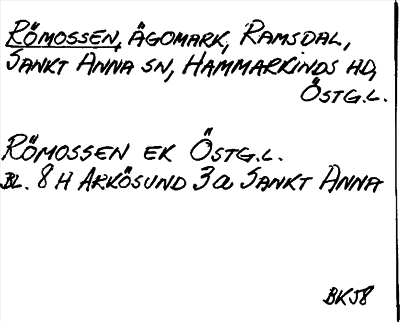 RÖMOSSEN, ÄGOMARK, RAMSDAL,
SANKT ANNA SN, HAMMARKINDS HD,
ÖSTG.L.
RÖMOSSEN EK ÖSTG.L.
BL. 8 H ARKÖSUND 3a SANKT ANNA
BKJ8